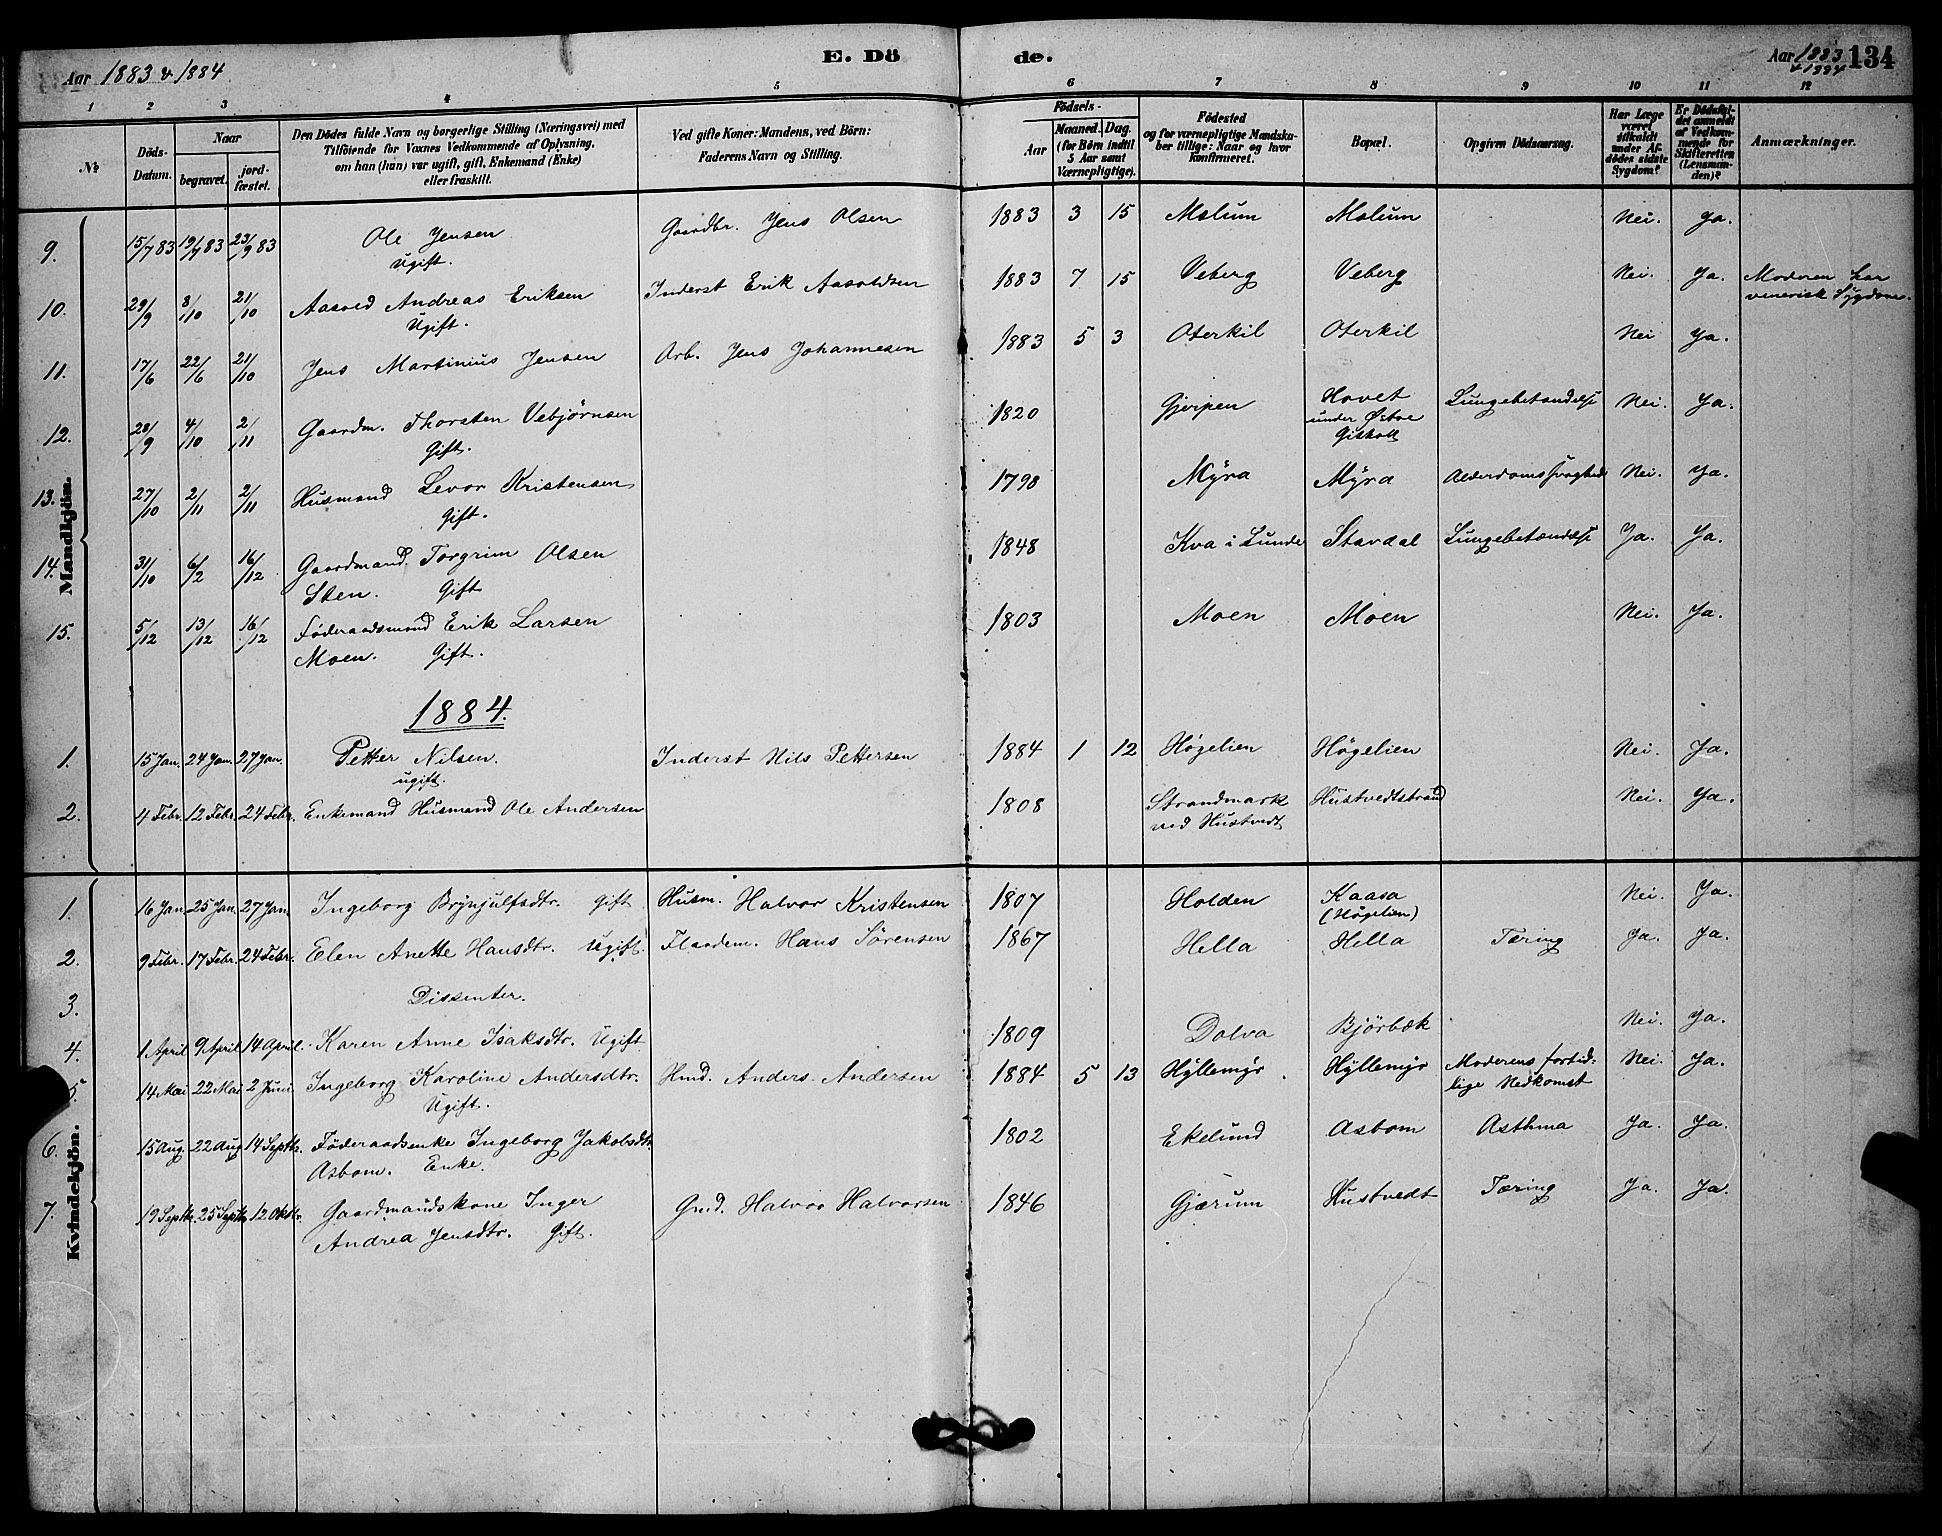 Aar 1883 & 1884
E. Dö de.
Aar 1883 & 1884 134
1 2 3 4 5 6 7 8 9 10 11 12
No
Döds-Datum.
Naar
begravet.
jord-fæstet.
Den Dödes fulde Navn og borgerlige Stilling (Næringsvei) med
Tilföiende for Voxnes Vedkommende af Oplysning,
om han (hun) var ugift, gift, Enkemand (Enke)
eller fraskilt.
Ved gifte Koner: Mandens, ved Börn:
Faderens Navn og Stilling.
Födsels-
Aar
Maaned. Dag.
(for Börn indtil
5 Aar samt
Værnepligtige).
Födested
og for værnepligtige Mandska-
ber tillige: Naar og hvor
konfirmeret.
Bopæl.
Opgiven Dödsaarsag.
Har Læge
været
tilkaldt
under Af-
dödes sidste
Sygdom?
Er Dödsfal-
det anmeldt
af Vedkom-
mende for
Skifteretten
(Lensman-
den)?
Anmærkninger.
Mandkjön.
9. 15/7 83 19/7 83 23/9 83 Ole Jensen Gaardbr. Jens Olsen 1883 3 15 Mælum Mælum Nei. Ja.
Ugift.
10. 29/9 8/10 21/10 Aasold Andreas Eriksen Inderst Erik Aasoldsen 1883 7 15 Veberg Veberg Nei. Ja. Moderen har
Ugift. venerisk Sygdom.
11. 17/6 22/6 21/10 Jens Martinius Jensen Arb. Jens Johannesen 1883 5 3 Oterkil Oterkil Nei Ja.
12. 28/9 4/10 2/11 Gaardm. Thorsten Vebjørnsen 1820 Gjerpen Hovet Lungebetændelse Nei. Ja.
Gift. under Østre
Gisholt
13. 27/10 2/11 2/11 Husmand Levor Kristensen 1798 Myra Myra Alderdomssvaghed Nei. Ja.
Gift.
14. 31/10 6/2 16/12 Gaardmand Torgrim Olsen 1848 Kva i Lunde Stavdal Lungebetændelse Ja. Ja.
Sten. Gift
15. 5/12 13/12 16/12 Føderaadsmand Erik Larsen 1803 Moen Moen Nei. Ja.
Moen. Gift.
1884.
1. 15 Jan. 24 Jan. 27 Jan. Petter Nilsen. Inderst Nils Pettersen 1884 1 12 Høgelien Høgelien Nei. Ja.
ugift.
2. 4 Febr. 12 Febr. 24 Febr. Enkemand Husmand Ole Andersen 1808 Strandmark Hustvedtstrand Nei. Ja.
ved Hustvedt
Kvindekjön.
1. 16 Jan 25 Jan. 27 Jan. Ingeborg Brynjulfsdtr. gift Husm. Halvor Kristensen 1807 Holden Kaasa Nei. Ja.
(Høgelien)
2. 9 Febr. 17 Febr. 24 Febr. Elen Anette Hansdtr. Ugift. Gaardm. Hans Sørensen 1867 Hella Hella Tæring Ja. Ja.
3. Dissenter.
4. 1 April 9 April 14 April. Karen Anne Isaksdtr. Ugift 1809 Dolva Bjørbæk Nei. Ja.
5. 14 Mai 22 Mai 2 Juni Ingeborg Karoline Andersdtr. Hmd. Anders Andersen 1884 5 13 Hyllemyr Hyllemyr Moderens fortid- Nei. Ja.
Ugift. lige Nedkomst
6. 15 Aug. 22 Aug 14 Septbr. Føderaadsenke Ingeborg Jakobsdtr. 1802 Ekelund Asbom Asthma Ja. Ja.
Asbom. Enke.
7. 19 Septbr. 25 Septbr. 12 Oktbr. Gaardmandskone Inger Gmd. Halvor Halvorsen 1846 Gjærum Hustvedt Tæring Ja. Ja.
Andrea Jensdtr. Gift.